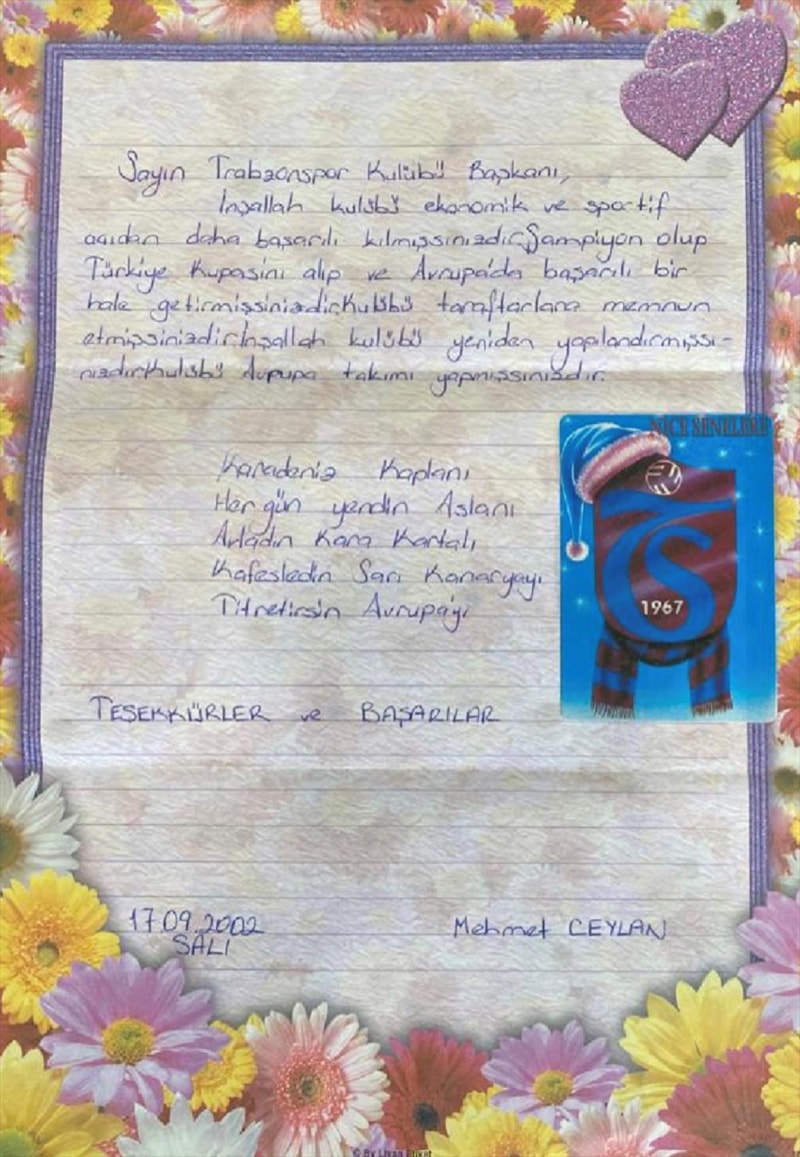 Sayın Trabzonspor Kulübü Başkanı,
İnşallah kulübü ekonomik ve sportif
açıdan daha başarılı kılmışsınızdır.Şampiyon olup
Türkiye Kupasını alıp ve Avrupa'da başarılı bir
hale getirmişsinizdir.Kulübü taraftarlara memnun
etmişsinizdir.İnşallah kulübü yeniden yapılandırmışsı-
nızdır.Kulübü Avpupa takımı yapmışsınızdır.
NİCE SENELERE
Karadeniz Kaplanı
Her gün yendin Aslanı
Avladın Kara Kartalı
Kafesledin Sarı Kanaryayı
Titretirsin Avrupa'yı
1967
TEŞEKKÜRLER ve BAŞARILAR
17.09.2002
SALI
Mehmet CEYLAN
© By Livan Etiket